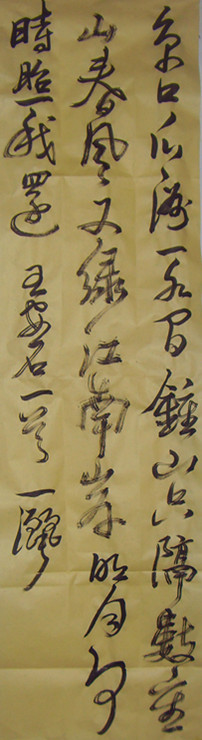 京口瓜洲一水间鍾山只隔數重
山春風又绿江南岸明月何
時照我還 王安石一首 一灏